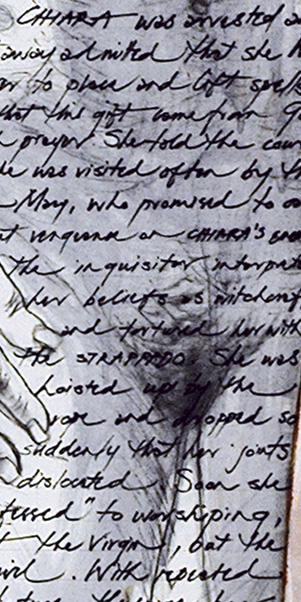 CHIARA was arrested a
away admitted that she h
er to place and lift spells
that this gift came from G
prayer. She told the cour
he was visited often by th
Mary, who promised to
at vengeance on CHIARA'S ene
the inquisitor interpret
her beliefs as witchcraf
and tortured her with
the STRAPPADO. She was
hoisted up by the
rope and dropped so
suddenly that her joints
dislocated. Soon she
fessed" to worshiping,
t the Virgin, but the
evil. With repeated